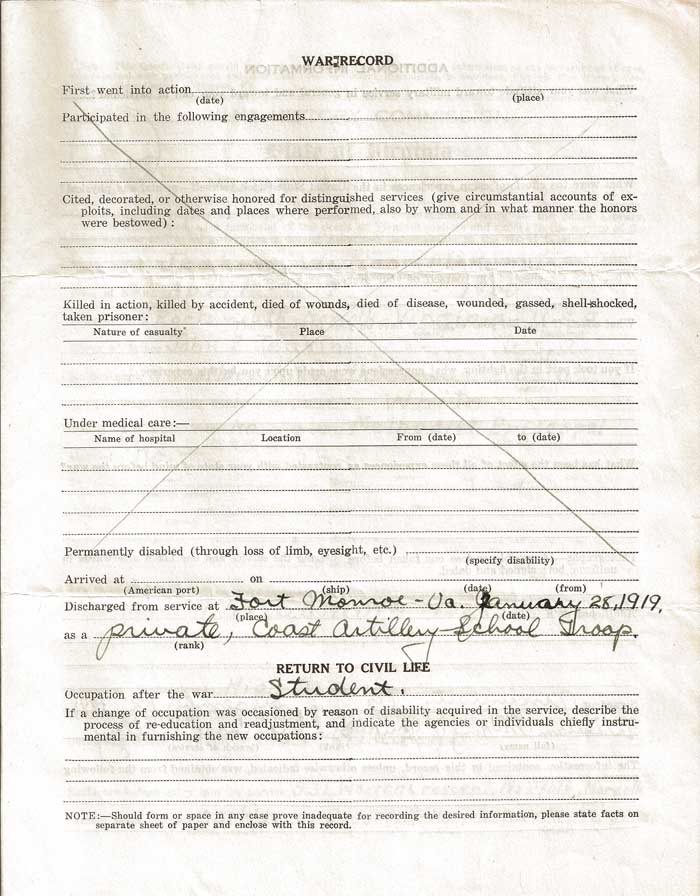 WAR RECORD
First went into action
(date) (place)
Participated in the following engagements
Cited, decorated, or otherwise honored for distinguished services (give circumstantial accounts of ex-
ploits, including dates and places where performed, also by whom and in what manner the honors
were bestowed) :
Killed in action, killed by accident, died of wounds, died of disease, wounded, gassed, shell-shocked,
taken prisoner:
Nature of casualty Place Date
Under medical care:—
Name of hospital Location From (date) to (date)
Permanently disabled (through loss of limb, eyesight, etc.)
(specify disability)
Arrived at on
(American port) (ship) (date) (from)
Discharged from service at Fort Monroe - Va. January 28, 1919,
(place) (date)
as a private, Coast Artillery School Troop.
(rank)
RETURN TO CIVIL LIFE
Occupation after the war Student.
If a change of occupation was occasioned by reason of disability acquired in the service, describe the
process of re-education and readjustment, and indicate the agencies or individuals chiefly instru-
mental in furnishing the new occupations:
NOTE:—Should form or space in any case prove inadequate for recording the desired information, please state facts on
separate sheet of paper and enclose with this record.